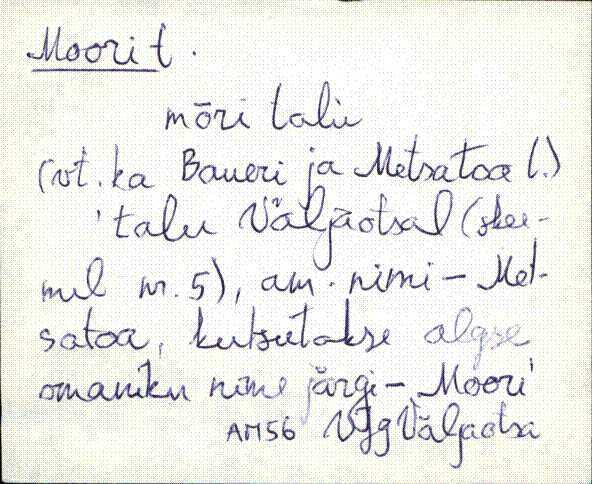 Moori t.
mōri talu
(vt. ka Baueri ja Metsatoa t.)
'talu Väljaotsal (skee-
mil nr. 5), am. nimi - Met-
satoa, kutsutakse algse
omaniku nime järgi - Moori'
AM56 VJg Väljaotsa